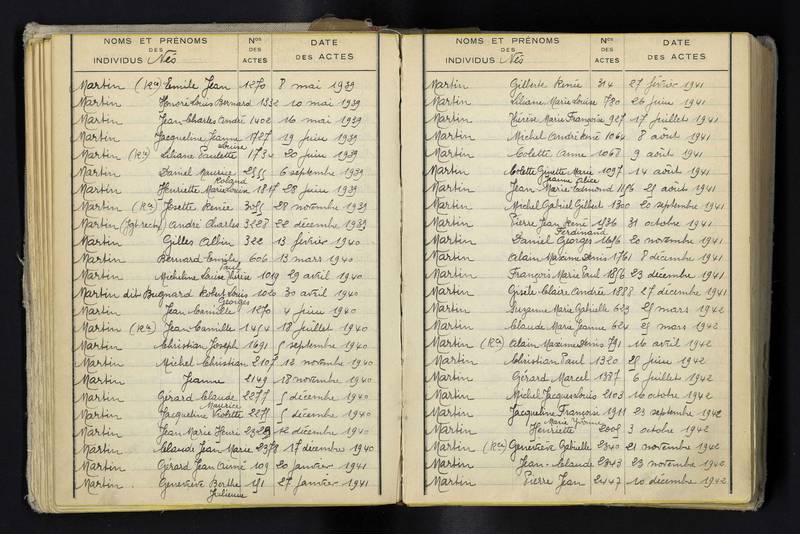 NOMS ET PRÉNOMS DES INDIVIDUS Nés Nos DES ACTES DATE DES ACTES
Martin (Rn) Emile Jean 1270 8 mai 1939
Martin Henri Louis Bernard 1332 10 mai 1939
Martin Jean Charles André 1402 16 mai 1939
Martin Jacqueline Jeanne 1727 19 juin 1939
Louise
Martin (Rn) Liliane Paulette 1734 20 juin 1939
Martin Daniel Maurice 2355 6 septembre 1939
Roland
Martin Henriette Marie Louise 1817 28 juin 1939
Martin (Rn) Josette Renée 3055 28 novembre 1939
Martin André Charles 3228 22 décembre 1939
Martin Gilles Albin 322 13 février 1940
Martin Bernard Emile 606 13 mars 1940
Paul
Martin Micheline Louise Thérèse 1019 29 avril 1940
Martin dit Bugnard Robert Louis 1020 30 avril 1940
Georges
Martin Jean Camille 1270 4 juin 1940
Martin (Rn) Jean Camille 1454 18 juillet 1940
Martin Christian Joseph 1691 5 septembre 1940
Martin Michel Christian 2107 12 novembre 1940
Martin Jeanne 2149 18 novembre 1940
Martin Gérard Claude 2277 5 décembre 1940
Maurice
Martin Jacqueline Violette 2275 5 décembre 1940
Martin Jean Marie Henri 2323 12 décembre 1940
Martin Claude Jean Marie 2378 17 décembre 1940
Martin Gérard Jean Aimé 109 20 janvier 1941
Martin Geneviève Berthe 151 27 janvier 1941
Julienne
NOMS ET PRÉNOMS DES INDIVIDUS Nés Nos DES ACTES DATE DES ACTES
Martin Gilberte Renée 314 27 février 1941
Martin Liliane Marie Louise 780 26 juin 1941
Martin Thérèse Marie Françoise 927 17 juillet 1941
Martin Michel André René 1064 8 août 1941
Martin Colette Anne 1068 9 août 1941
Martin Colette Ginette Marie 1097 14 août 1941
Jeanne Alice
Martin Jean Marie Edmond 1156 25 août 1941
Martin Michel Gabriel Gilbert 1300 20 septembre 1941
Martin Pierre Jean René 1536 31 octobre 1941
Ferdinand
Martin Daniel Georges 1646 20 novembre 1941
Martin Alain Maxime Denis 1761 8 décembre 1941
Martin François Marie Paul 1856 23 décembre 1941
Martin Gisèle Claire Andrée 1888 27 décembre 1941
Martin Suzanne Marie Gabrielle 623 25 mars 1942
Martin Claude Marie Jeanne 624 25 mars 1942
Martin (Rn) Alain Maxime Denis 791 16 avril 1942
Martin Christian Paul 1320 25 juin 1942
Martin Gérard Marcel 1387 6 juillet 1942
Martin Michel Jacques Louis 2103 16 octobre 1942
Martin Jacqueline Françoise 1911 23 septembre 1942
Marie Yvonne
Martin Henriette 2008 3 octobre 1942
Martin (Rn) Geneviève Gabrielle 2340 21 novembre 1942
Martin Jean-Claude 2343 23 novembre 1942
Martin Pierre Jean 2447 10 décembre 1942